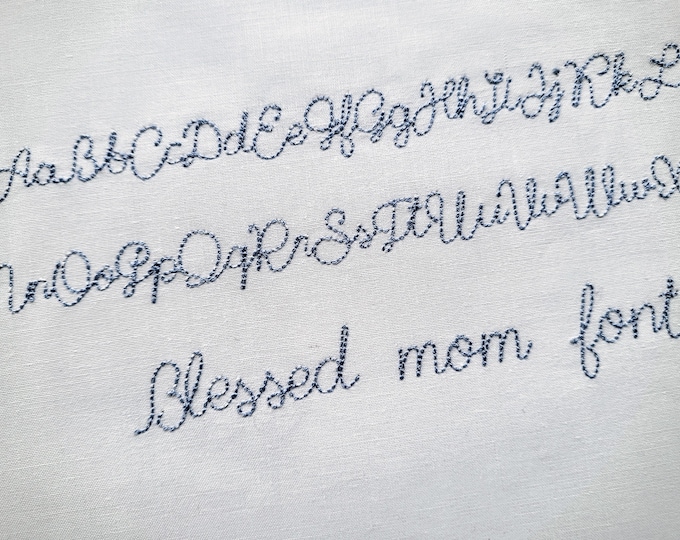 AaBbCcDdEeFfGgHhIiJjKkL
nOoPpQqRrSsTtUuVvWw
Blessed mom font